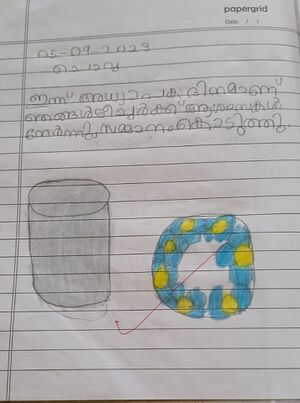 papergrid
Date: / /
05-09-2023
ചൊവ്വ
ഇന്ന് അധ്യാപക ദിനമാണ്
ഞങ്ങൾ ടീച്ചർക്ക് ആശംസകൾ
നേർന്നു. സമ്മാനം കൊടുത്തു.